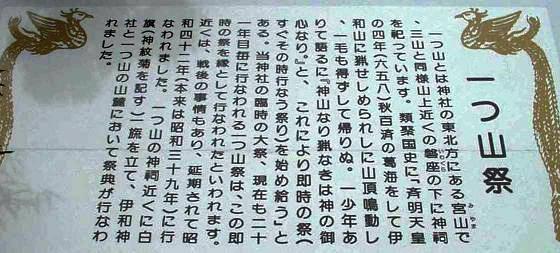 一つ山祭
一つ山とは神社の東北方にある宮山で
みやま
、三山と同様山上近くの磐座の下に神祠
いわくら
を祀っています。類聚国史に「斉明天皇
の四年(六五八)秋百済の葛海をして伊
和山に猟せしめられしに山頂鳴動し
、一毛も得ずして帰りぬ。一少年あ
りて語るに『神山なり猟なきは神の御
心なり。』と、これにより即時の祭(
すぐその時行なう祭り)を始め給う」と
ある。当神社の臨時の大祭、現在も二十
一年目毎に行なわれる一つ山祭は、この即
時の祭を縁として行なわれたといわれます。
近くは、戦後の事情もあり、延期されて昭
和四十二年(本来は昭和三十九年)に行
なわれました。一つ山の神祠近くに白
旗(神紋菊を記す)一旒を立て、伊和神
社と一つ山の山麓において祭典が行なわ
れました。